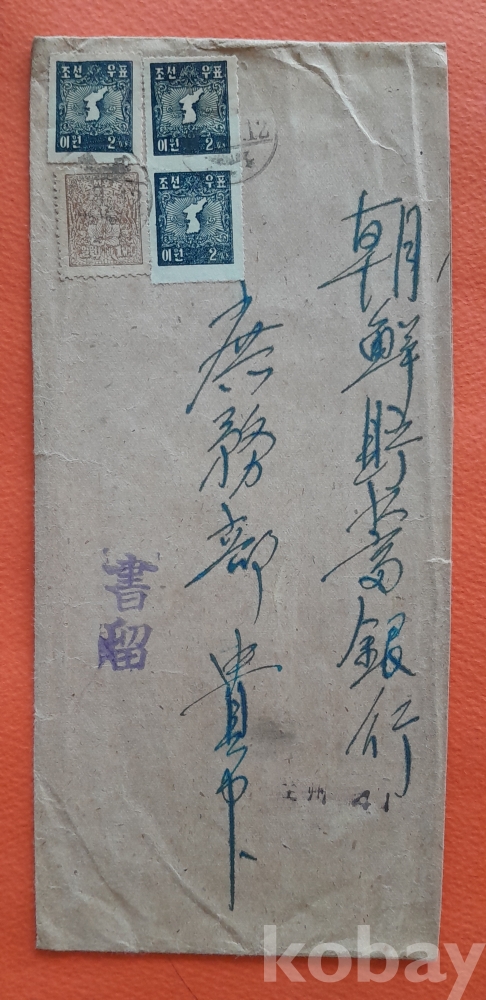 朝鮮貯蓄銀行
庶務部 貴中
書留
조선 우표
이원 2
조선 우표
이원 2
조선 우표
이원 2
12
州 41
kobay